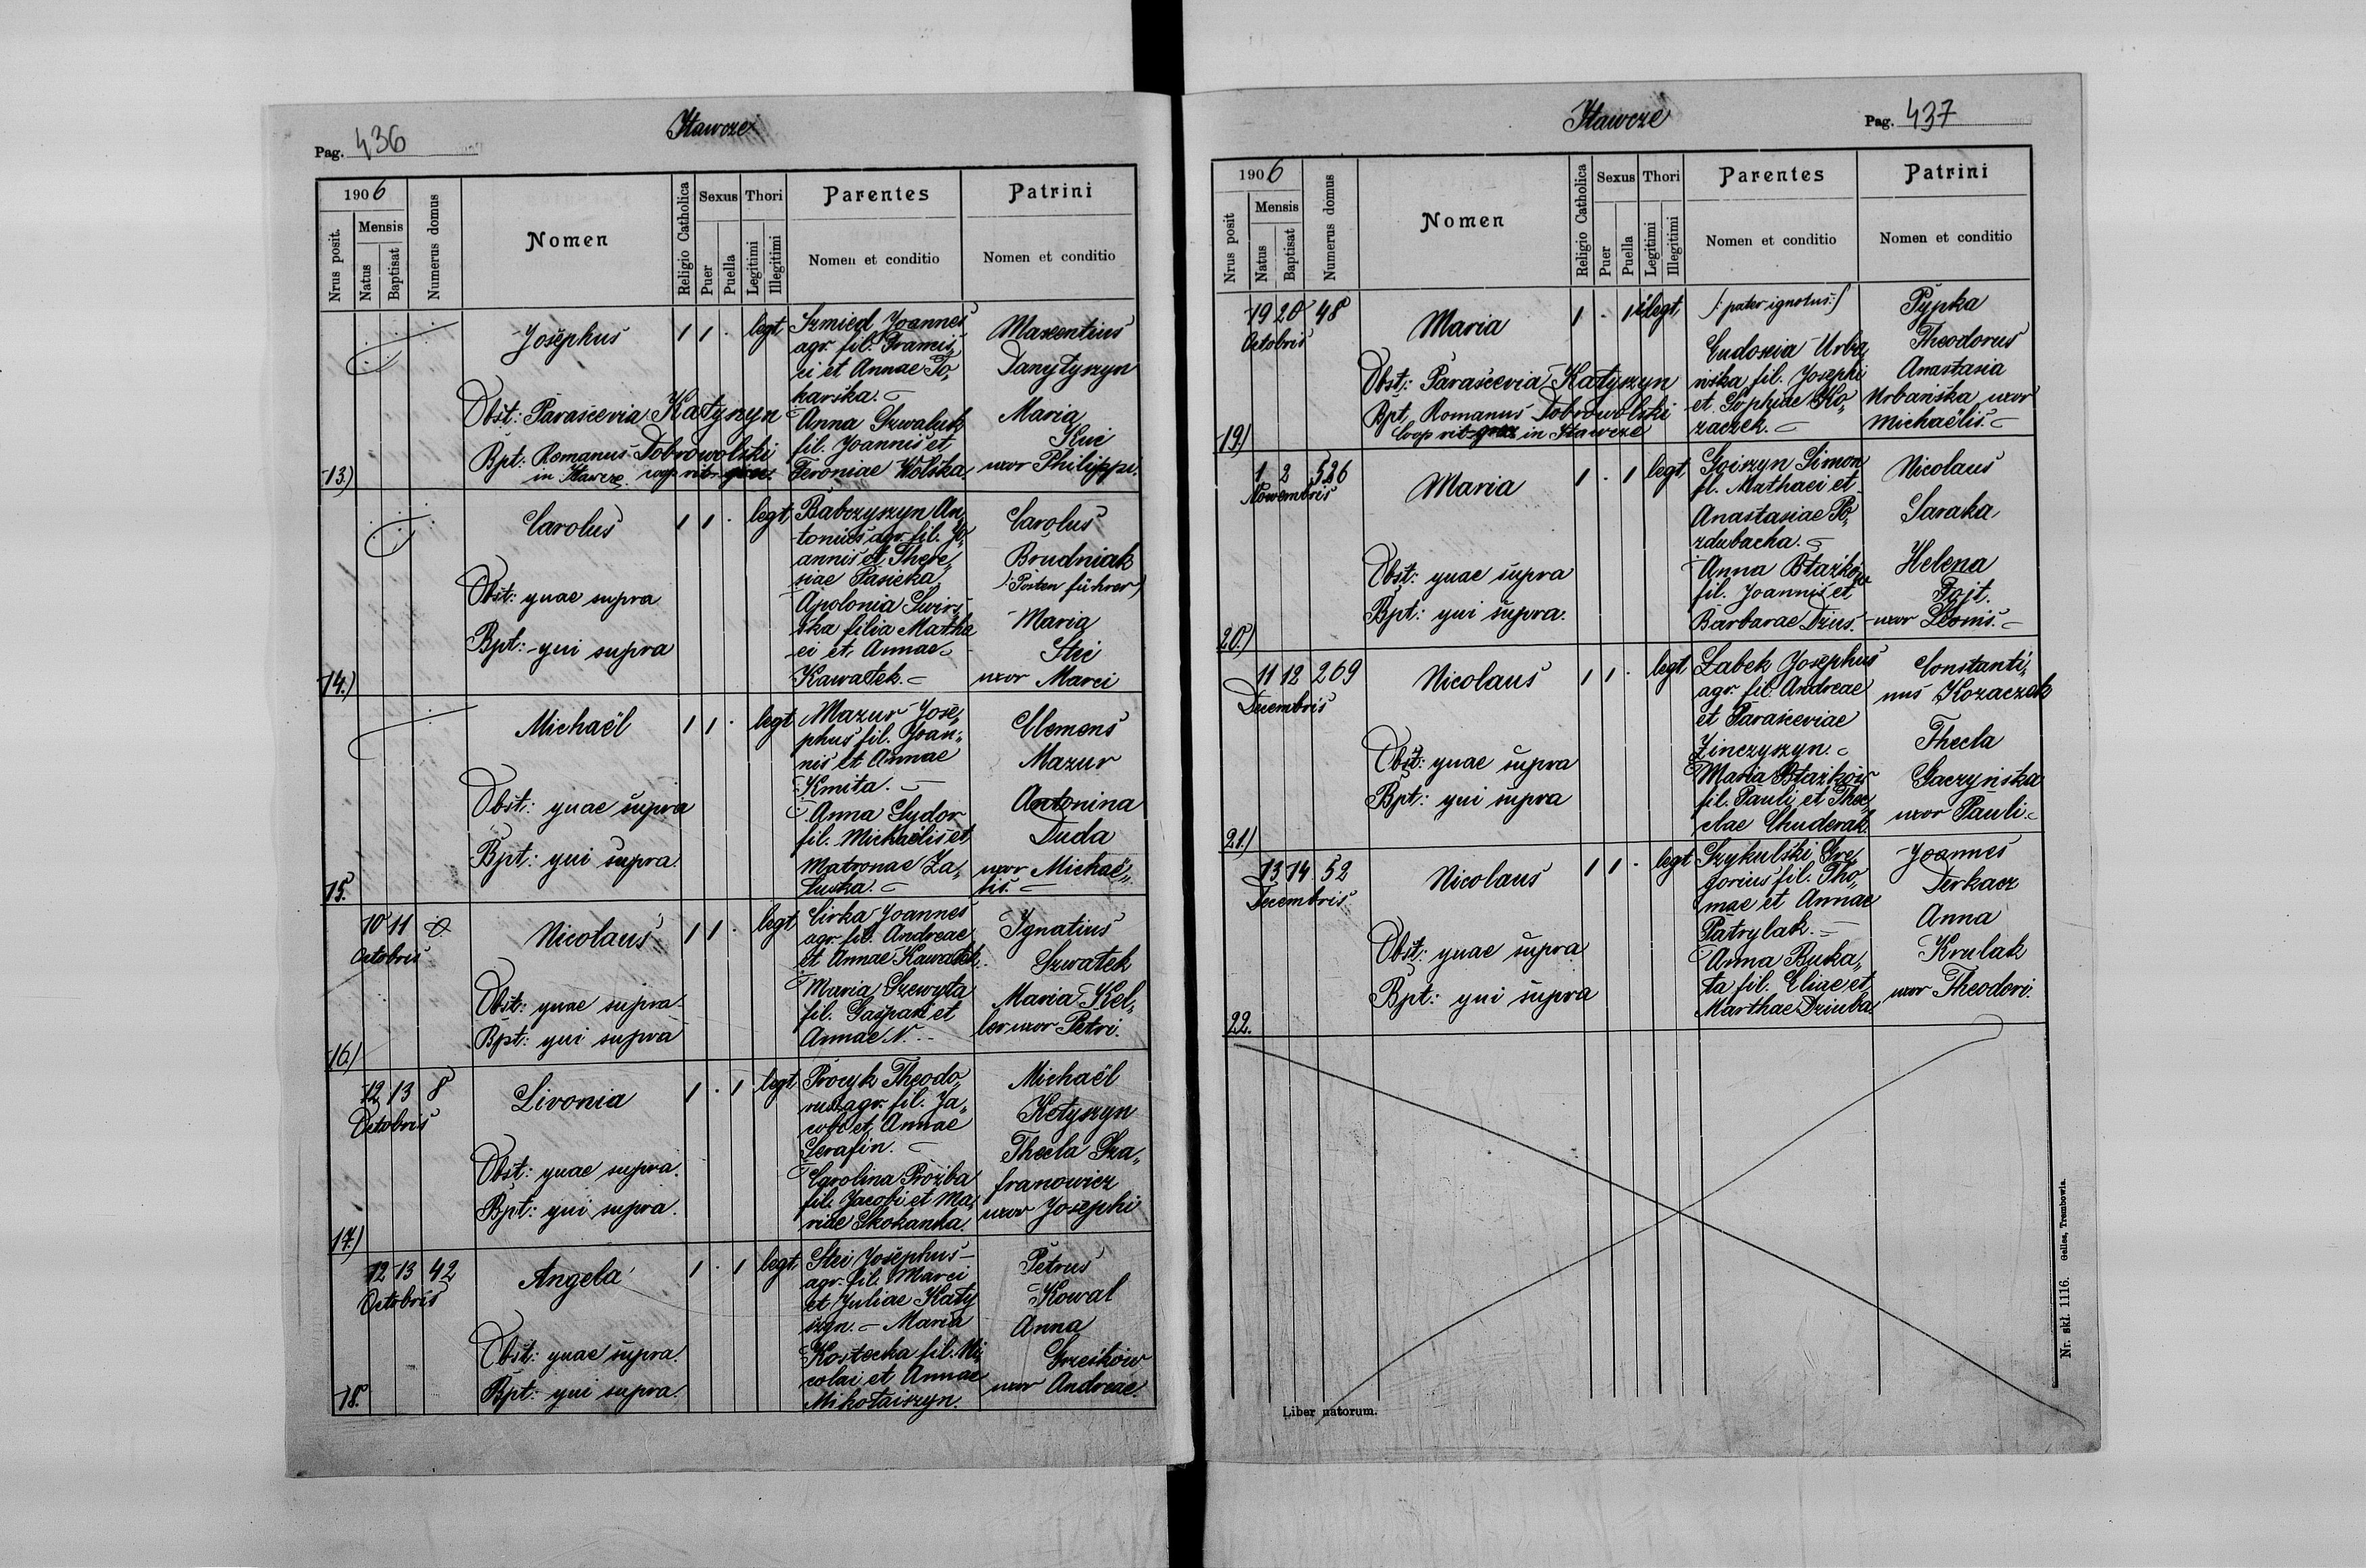 Pag. 436
Iławcze
1906
Nrus posit.
Mensis
Natus
Baptisat
Numerus domus
Nomen
Religio Catholica
Sexus
Puer
Puella
Thori
Legitimi
Illegitimi
Parentes
Nomen et conditio
Patrini
Nomen et conditio
13.)
Josephus
1 1 . legt
Obst: Parascevia Katyszyn
Bpt: Romanus Dobrowolski
in Iławcze coop rit. graec
Szmied Joannes
agr. fil. Francis„
ci et Annae To„
karska.
Anna Szwaluk
fil. Joannis et
Feroniae Wolska.
Maxentius
Danytyszyn
Maria
Kuc
uxor Philippi.
14.)
Carolus
1 1 . legt
Obst: quae supra
Bpt: qui supra
Babczyszyn An„
tonius agr. fil. Jo„
annis et There„
siae Pasieka
Apolonia Swirs„
ka filia Matha
ei et Annae
Kawałek.
Carolus
Brudniak
(: Posten führer)
Maria
Stei
uxor Marci
15.
Michaël
1 1 . legt
Obst: quae supra
Bpt: qui supra.
Mazur Jose„
phus fil. Joan„
nis et Annae
Kmita.
Anna Sydor
fil. Michaëlis et
Matronae Za„
łuska.
Clemens
Mazur
Antonina
Duda
uxor Michaë„
lis.
16.)
10 11
Octobris
Nicolaus
1 1 . legt
Obst: quae supra
Bpt: qui supra
Cirka Joannes
agr. fil. Andreae
et Annae Kawałek.
Maria Szewyła
fil. Gaspari et
Annae N.
Ignatius
Szwałek
Maria Kel„
ler uxor Petri.
17.)
12 13 8
Octobris
Livonia
1 . 1 legt
Obst: quae supra.
Bpt: qui supra.
Procyk Theodo„
rus agr. fil. Ja„
cobi et Annae
Serafin.
Carolina Proźba
fil. Jacobi et Ma„
riae Skokanka.
Michaël
Ketyszyn
Thecla Sza„
franowicz
uxor Josephi
18.
12 13 42
Octobris
Angela
1 . 1 legt
Obst: quae supra.
Bpt: qui supra.
Stei Josephus
agr. fil. Marci
et Juliae Katy
szyn. Maria
Kostecka fil. Ni„
colai et Annae
Mikołaiszyn.
Petrus
Kowal
Anna
Grześków
uxor Andreae.
Iławcze
Pag. 437
1906
Nrus posit
Mensis
Natus
Baptisat
Numerus domus
Nomen
Religio Catholica
Sexus
Puer
Puella
Thori
Legitimi
Illegitimi
Parentes
Nomen et conditio
Patrini
Nomen et conditio
19)
19 20 48
Octobris
Maria
1 . 1 illegt
Obst: Parascevia Katyszyn
Bpt, Romanus Dobrowolski
Coop rit. graec in Iławcze
/: pater ignotus :/
Eudoxia Urba„
ńska fil. Josephi
et Sophiae Ko„
zaczek.
Pypka
Theodorus
Anastasia
Urbańska uxor
Michaëlis.
20.)
1 2 526
Nowembris
Maria
1 . 1 legt
Obst: quae supra
Bpt: qui supra.
Goiszyn Simon
fl. Mathaei et
Anastasiae Po„
zdubacha.
Anna Błażków
fil. Joannis et
Barbarae Dzus.
Nicolaus
Saraka
Helena
Fojt.
uxor Leonis.
21.)
11 12 269
Decembris
Nicolaus
1 1 . legt
Obst: quae supra
Bpt: qui supra
Labek Josephus
agr. fil. Andreae
et Parasceviae
Jinczyszyn.
Maria Błażków
fil. Pauli et Thec„
clae Chuderak.
Constanti„
nus Kozaczek
Thecla
Gaczyńska
uxor Pauli.
22.
13 14 52
Decembris
Nicolaus
1 1 . legt
Obst: quae supra
Bpt: qui supra
Szykulski Gre„
gorius fil. Tho„
mae et Annae
Patrylak.
Anna Buka„
ta fil. Eliae et
Marthae Dziuba.
Joannes
Derkacz
Anna
Krulak
uxor Theodori.
Liber natorum.
Nr. skł. 1116. Gelles, Trembowla.